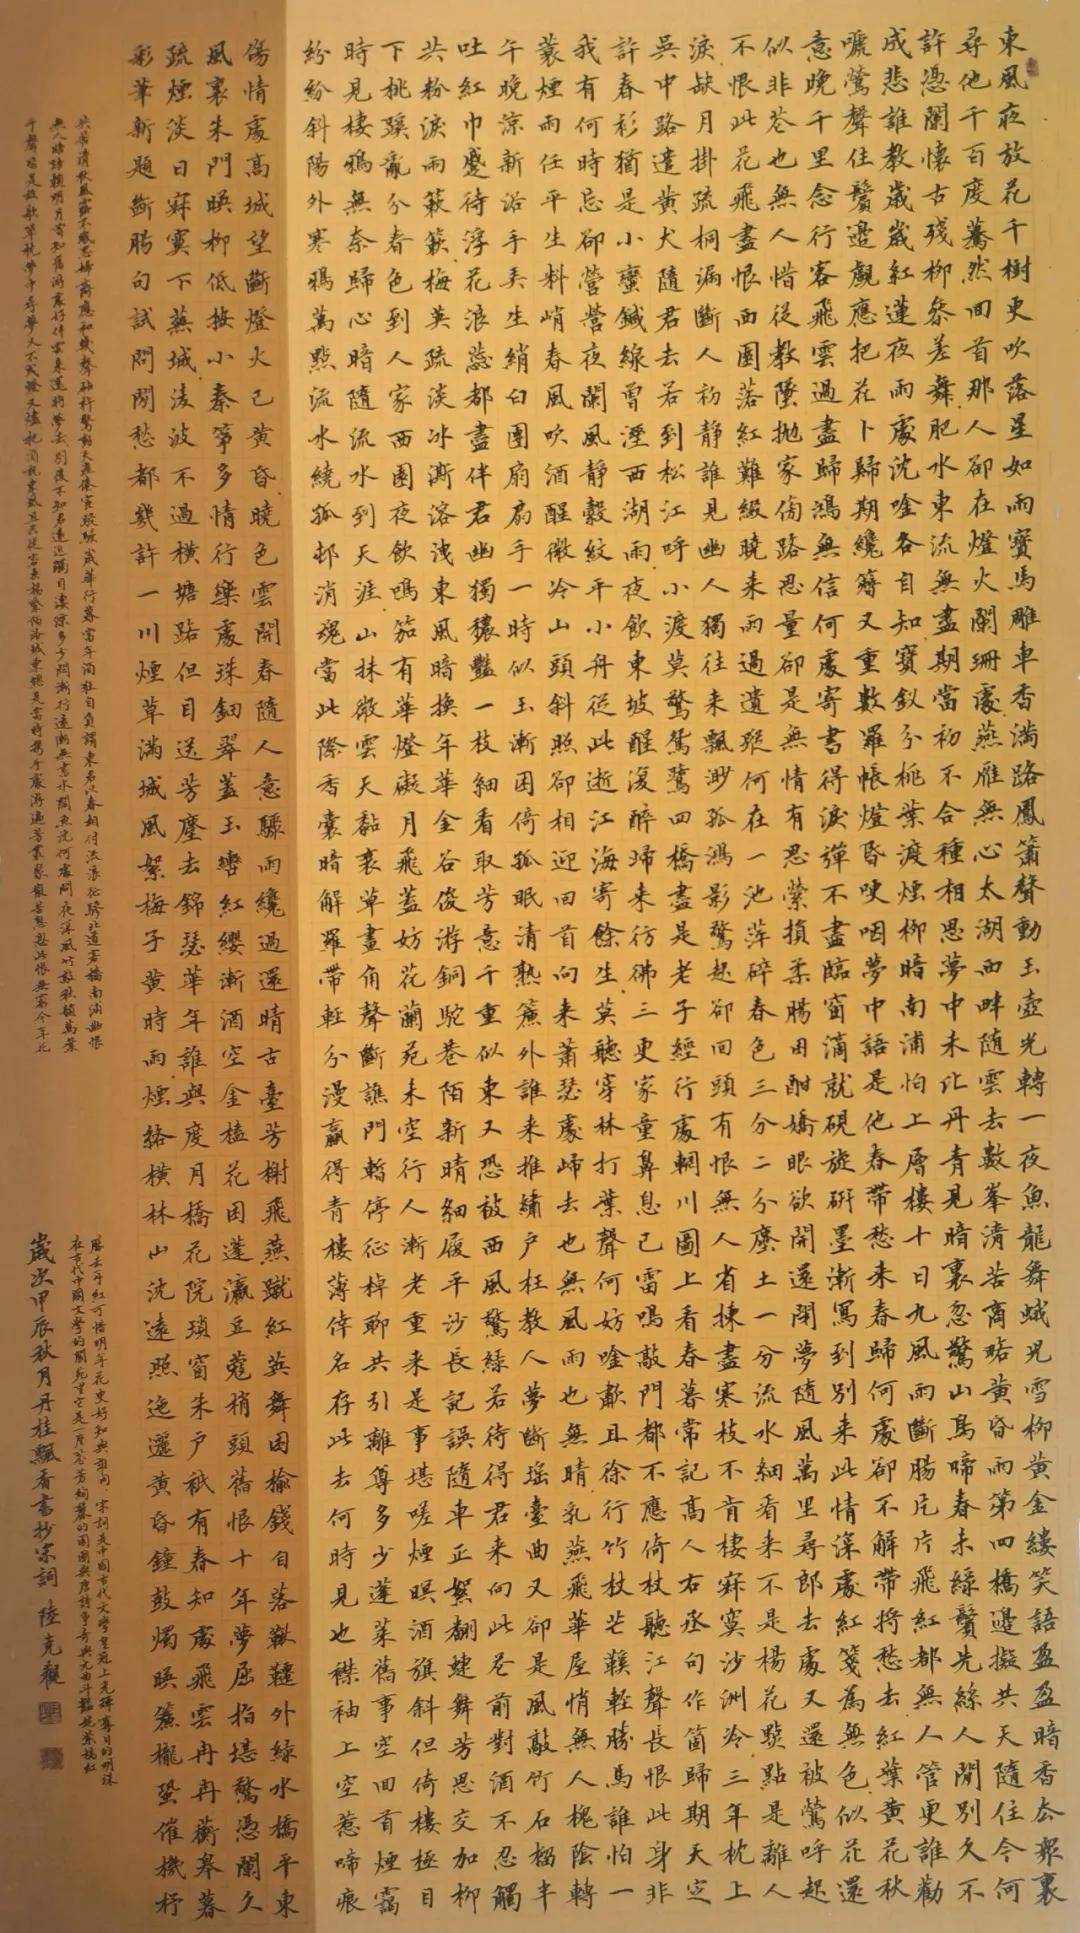 東風夜放花千樹更吹落星如雨寶馬雕車香滿路鳳簫聲動玉壺光轉一夜魚龍舞蛾兒雪柳黃金縷笑語盈盈暗香去眾裏
尋他千百度驀然回首那人卻在燈火闌珊處燕雁無心太湖西畔隨雲去數峯清苦商略黃昏雨第四橋邊擬共天隨住今何
許憑闌懷古殘柳參差舞肥水東流無盡期當初不合種相思夢中未比丹青見暗裏忽驚山鳥啼春未綠鬢先絲人間別久不
成悲誰教歲歲紅蓮夜兩處沈唫各自知寶釵分桃葉渡煙柳暗南浦怕上層樓十日九風雨斷腸片片飛紅都無人管更誰勸
嗁鶯聲住鬢邊覷應把花卜歸期纔簪又重數羅帳燈昏哽咽夢中語是他春帶愁來春歸何處卻不解帶將愁去紅葉黃花秋
意晚千里念行客飛雲過盡歸鴻無信何處寄書得淚彈不盡臨窗滴就硯旋研墨漸寫到別來此情深處紅箋為無色似花還
似非花也無人惜從教墜拋家傍路思量卻是無情有思縈損柔腸困酣嬌眼欲開還閉夢隨風萬里尋郎去處又還被鶯呼起
不恨此花飛盡恨西園落紅難綴曉來雨過遺蹤何在一池萍碎春色三分二分塵土一分流水細看來不是楊花點點是離人
淚缺月掛疏桐漏斷人初靜誰見幽人獨往來飄渺孤鴻影驚起卻回頭有恨無人省揀盡寒枝不肯棲寂寞沙洲冷三年枕上
吳中路遣黃犬隨君去若到松江呼小渡莫驚鴛鷺四橋盡是老子經行處輞川圖上看春暮常記高人右丞句作箇歸期天定
許春衫猶是小蠻鍼線曾溼西湖雨夜飲東坡醒復醉歸來彷彿三更家童鼻息已雷鳴敲門都不應倚杖聽江聲長恨此身非
我有何時忘卻營營夜闌風靜縠紋平小舟從此逝江海寄餘生莫聽穿林打葉聲何妨唫歗且徐行竹杖芒鞵輕勝馬誰怕一
蓑煙雨任平生料峭春風吹酒醒微冷山頭斜照卻相迎回首向來蕭瑟處歸去也無風雨也無晴乳燕飛華屋悄無人槐陰轉
午晚涼新浴手弄生綃白團扇扇手一時似玉漸困倚孤眠清熟簾外誰來推繡戶枉教人夢斷瑤臺曲又卻是風敲竹石榴半
吐紅巾蹙待浮花浪蕊都盡伴君幽獨穠豔一枝細看取芳意千重似束又恐被西風驚綠若待得君來向此花前對酒不忍觸
共粉淚兩簌簌梅英疏淡冰澌溶洩東風暗換年華金谷俊游銅駝巷陌新晴細履平沙長記誤隨車正絮翻蝶舞芳思交加柳
下桃蹊亂分春色到人家西園夜飲鳴笳有華燈礙月飛蓋妨花蘭苑未空行人漸老重來是事堪嗟煙暝酒旗斜但倚樓極目
時見棲鴉無奈歸心暗隨流水到天涯山抹微雲天黏衰草畫角聲斷譙門暫停征棹聊共引離尊多少蓬萊舊事空回首煙靄
紛紛斜陽外寒鴉萬點流水繞孤邨消魂當此際香囊暗解羅帶輕分漫贏得青樓薄倖名存此去何時見也襟袖上空惹啼痕
傷情處高城望斷燈火已黃昏曉色雲開春隨人意驟雨纔過還晴古臺芳榭飛燕蹴紅英舞困榆錢自落鞦韆外綠水橋平東
風裏朱門映柳低按小秦箏多情行樂處珠鈿翠蓋玉轡紅纓漸酒空金榼花困蓬瀛豆蔻梢頭舊恨十年夢屈指堪驚憑闌久
疏煙淡日寂寞下蕪城凌波不過橫塘路但目送芳塵去錦瑟華年誰與度月橋花院瑣窗朱戶祇有春知處飛雲冉冉蘅皋暮
彩筆新題斷腸句試問閒愁都幾許一川煙草滿城風絮梅子黃時雨煙絡橫林山沈遠照迤邐黃昏鐘鼓燭映簾櫳蛩催機杼
共苦清秋風露不眠思婦齊應和幾聲砧杵驚動天涯倦宦駸駸歲華行暮當年酒狂自負謂東君以春相付流浪征驂北道客檣南浦幽恨
無人晤語賴明月曾知舊游處好伴雲來還將夢去別後不知君遠近觸目淒涼多少悶漸行漸遠漸無書水闊魚沈何處問夜深風竹敲秋韻萬葉
千聲皆是恨故攲單枕夢中尋夢又不成燈又燼把酒祝東風且共從容垂楊紫陌洛城東總是當時攜手處游遍芳叢聚散苦怱怱此恨無窮今年花
勝去年紅可惜明年花更好知與誰同 宋詞是中國古代文學皇冠上光輝奪目的明珠
在古代中國文學的閬苑里它是一片芬芳絢麗的園圃與唐詩爭奇與元曲鬥豔姹紫嫣紅
歲次甲辰秋月丹桂飄香書抄宋詞 陸克